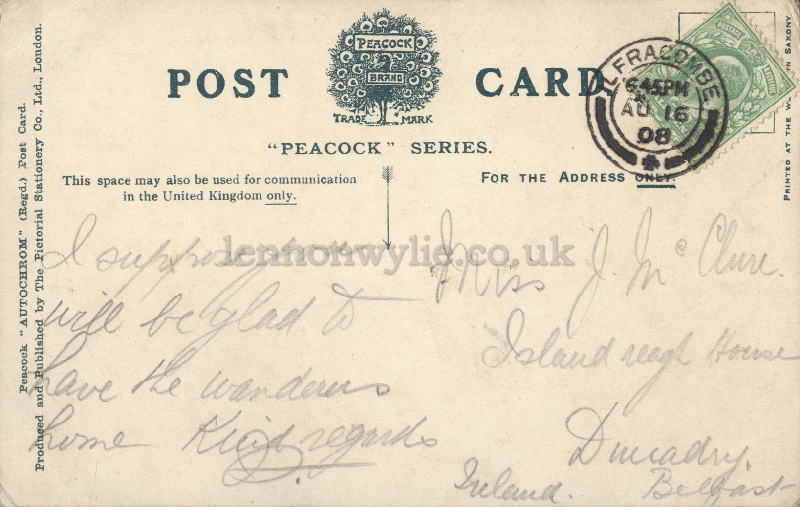 POST CARD
PEACOCK
BRAND
TRADE MARK
"PEACOCK" SERIES.
This space may also be used for communication
in the United Kingdom only.
FOR THE ADDRESS ONLY.
ILFRACOMBE
6.45PM
AU 16
08
Peacock "AUTOCHROM" (Regd.) Post Card.
Produced and Published by The Pictorial Stationery Co., Ltd., London.
PRINTED AT THE IN SAXONY
lennonwylie.co.uk
I suppose
will be glad to
have the wanderers
home Kind regards
Miss J. McClure.
Islandreagh House
Dunadry,
Belfast
Ireland.